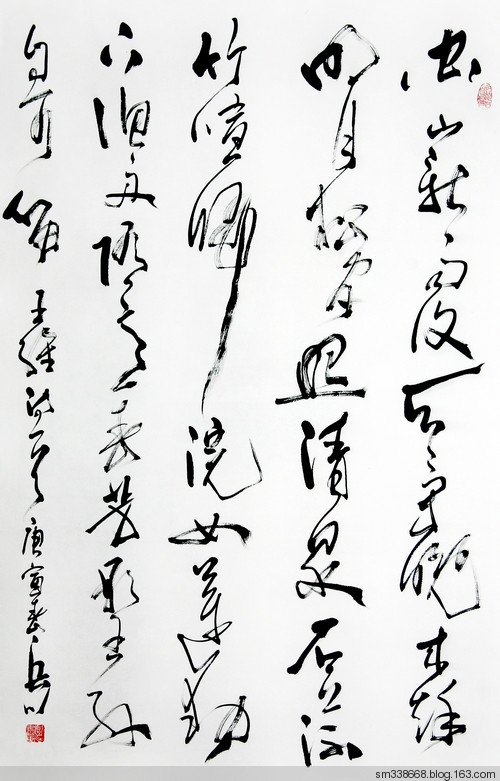 空山新雨後天氣晚來秋
明月松間照清泉石上流
竹喧歸浣女蓮動
下漁舟隨意春芳歇王孫
自可留 王維詩一首 庚寅春
sm338668.blog.163.com